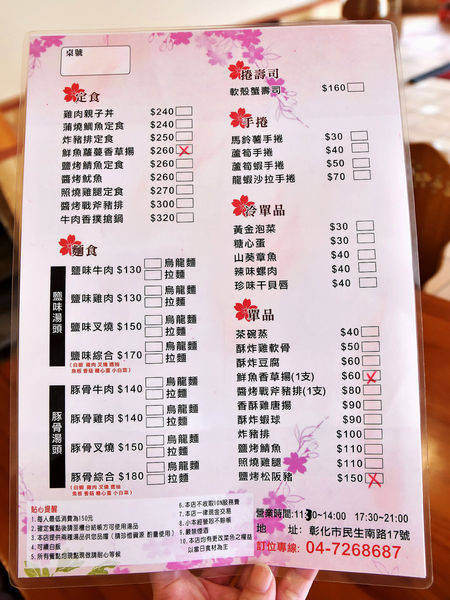 桌號
定食
雞肉親子丼 $240
蒲燒鯛魚定食 $240
炸豬排定食 $250
鮮魚蘿蔓香草揚 $260
鹽烤鯖魚定食 $260
醬烤魷魚 $260
照燒雞腿定食 $270
醬烤戰斧豬排 $300
牛肉香撲擔鍋 $320
麵食
鹽味湯頭
鹽味牛肉 $130 烏龍麵 拉麵
鹽味雞肉 $130 烏龍麵 拉麵
鹽味叉燒 $150 烏龍麵 拉麵
鹽味綜合 $170 烏龍麵 拉麵
豚骨湯頭
豚骨牛肉 $140 烏龍麵 拉麵
豚骨雞肉 $140 烏龍麵 拉麵
豚骨叉燒 $150 烏龍麵 拉麵
豚骨綜合 $180 烏龍麵 拉麵
捲壽司
軟殼蟹壽司 $160
手捲
馬鈴薯手捲 $30
蘆筍手捲 $40
蘆筍蝦手捲 $50
龍蝦沙拉手捲 $70
冷單品
黃金泡菜 $30
糖心蛋 $30
山葵章魚 $40
辣味螺肉 $40
珍味干貝唇 $40
單品
茶碗蒸 $40
酥炸雞軟骨 $50
酥炸豆腐 $60
鮮魚香草揚(1支) $60
醬烤戰斧豬排(1支) $80
香酥雞唐揚 $90
酥炸蝦球 $90
炸豬排 $100
鹽烤鯖魚 $110
照燒雞腿 $110
鹽烤松阪豬 $150
貼心提醒
1.每人最低消費為150元
2.確定餐點後請至櫃台結帳方可使用湯品
3.本店提共兩種湯品供您品嚐 (請珍惜資源 酌量使用)
4.可續白飯
5.所有餐點均現點現做請耐心等候
6.本店不收取10%服務費
7.本店一律現金交易
8.小本經營恕不賒帳
9.嚴禁煙酒
10.本店均有更改菜色之權益
以當日食材為主
營業時間11:30-14:00 17:30-21:00
地 址: 彰化市民生南路17號
訂位專線: 04-7268687